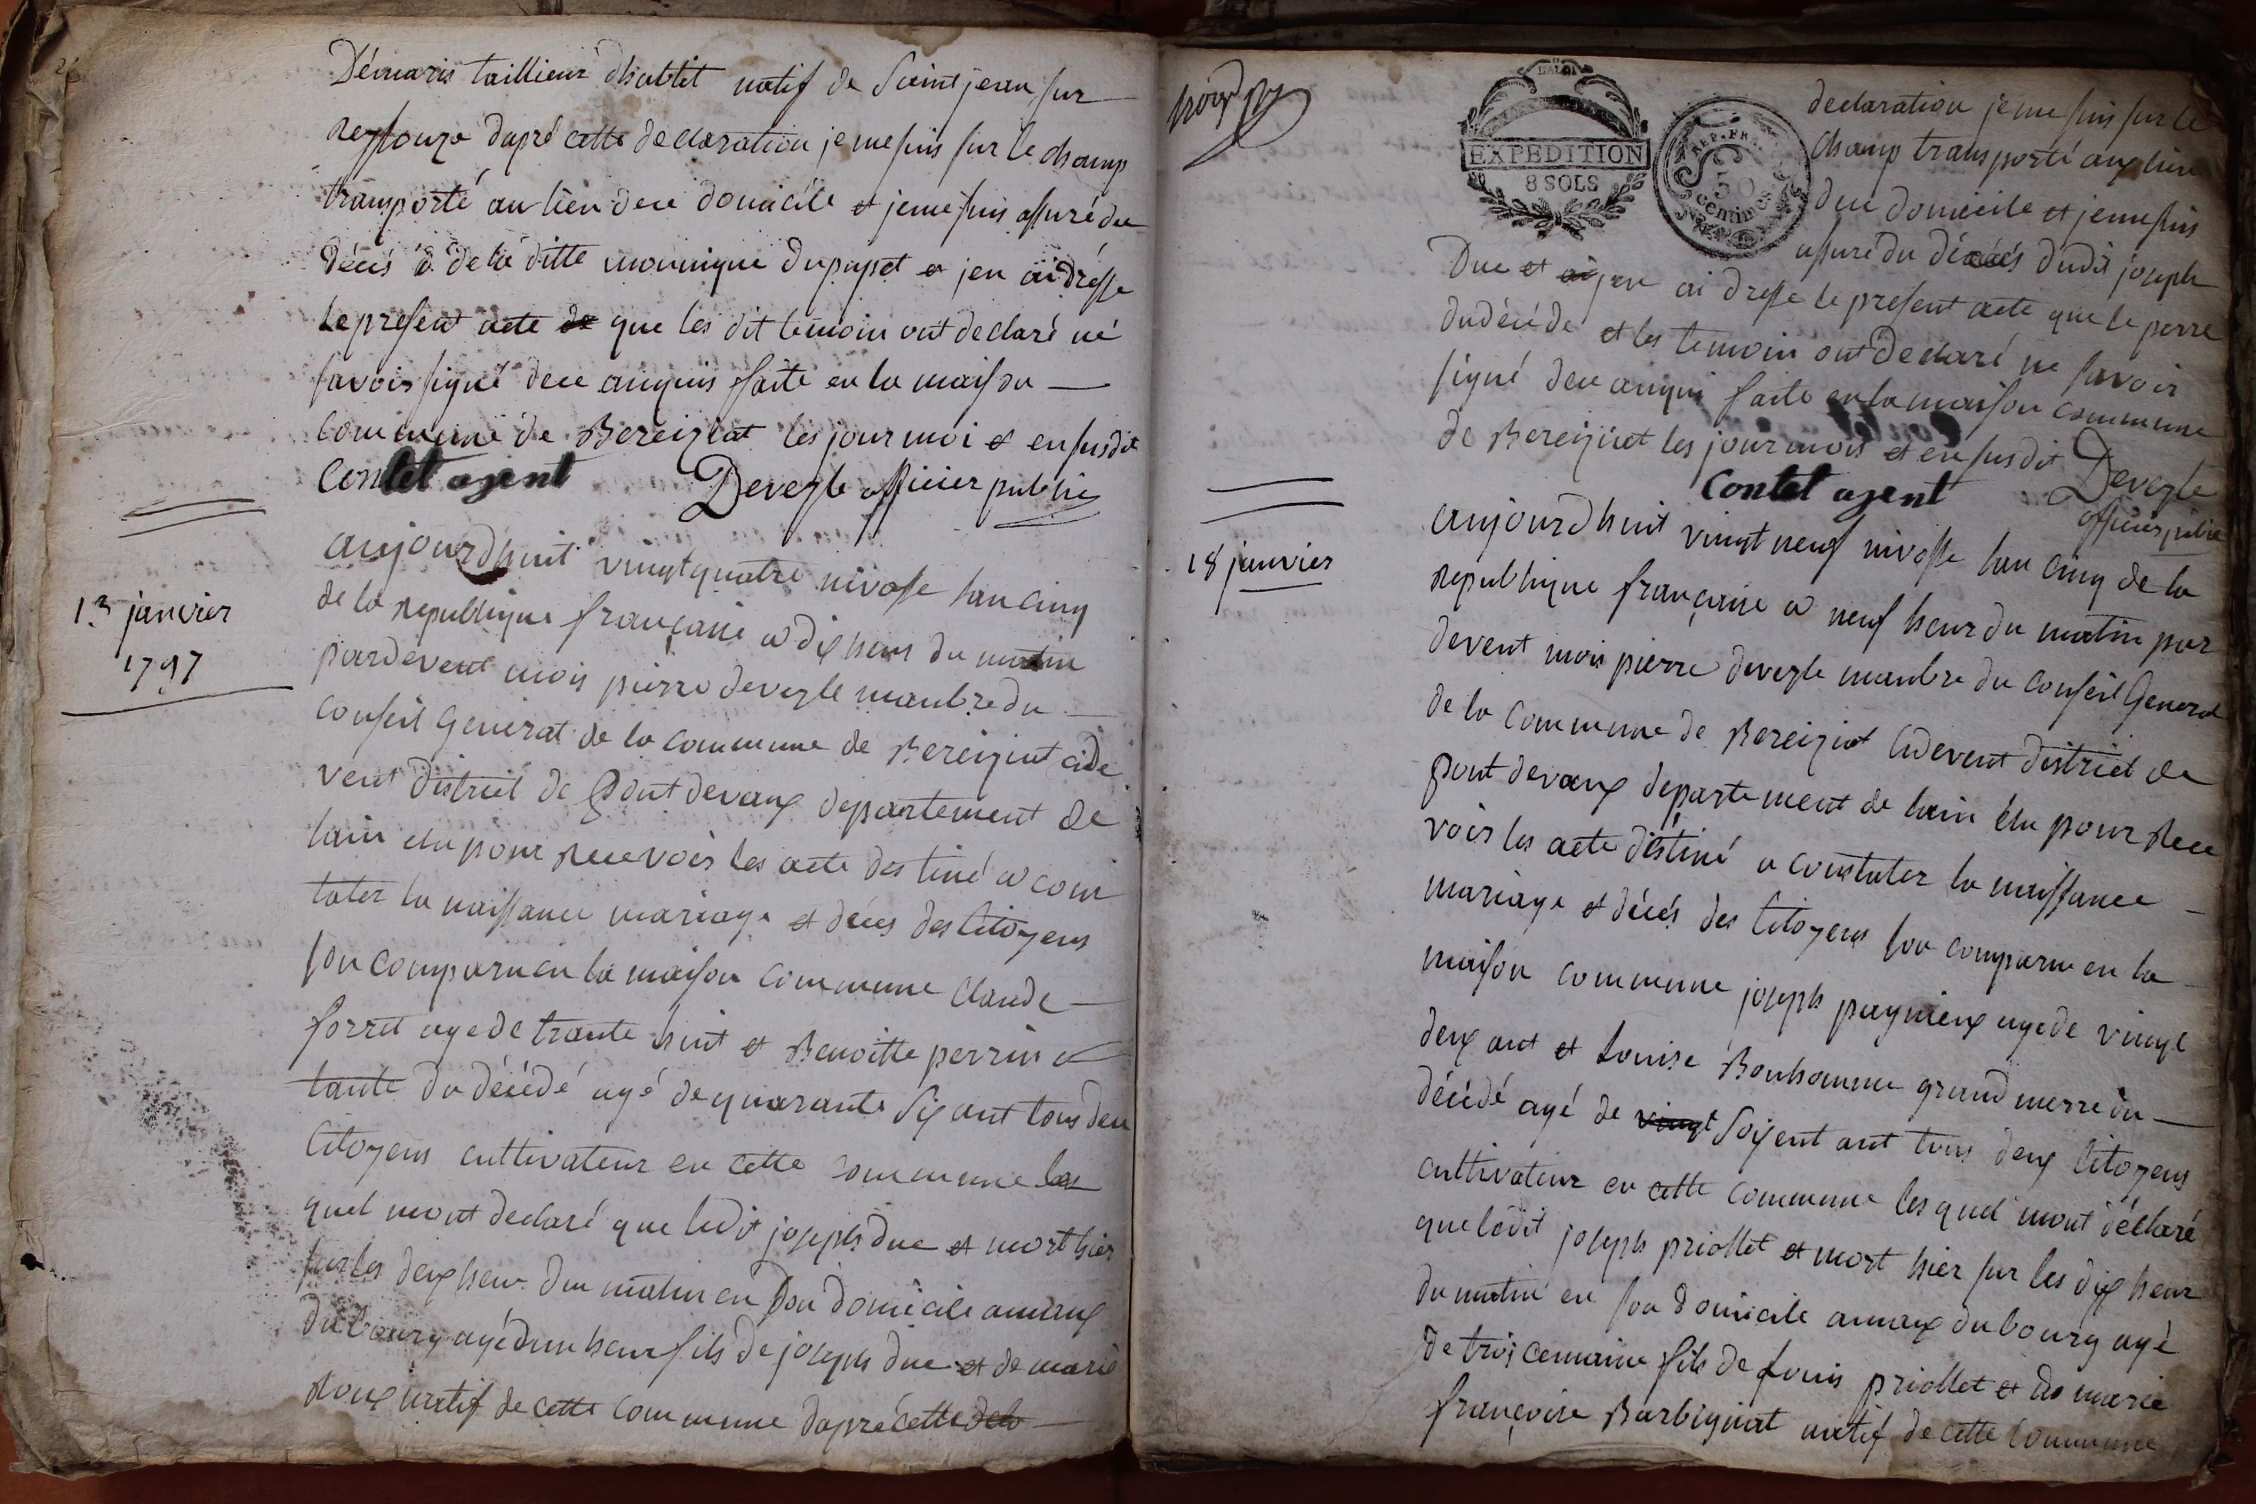 Démaris taillieur dhabit natif de Saint jean sur
reyssouze dapré cette declaration je me suis sur le champ
transporté au lieu de ce domicile et je me suis assuré du
décés d de la ditte monnique Dupupet et jen ai dresse
le present acte de que les dit temoin ont declaré né
savoir signé de ce anquis faite en la maison
Commune de Bereiziat les jour moi et en susdit
Contet agent Devegle officier public
13 janvier
1797
aujourdhuit vingt quatre nivosse lan cinq
de la republique françaisse a dix heur du matin
pardevent mois pierre devegle manbre du
conseil General de la commune de Bereiziat cide
vent district de Pont devaux departement de
lain elu pour recevoir les acte destiné a cons
tater la naissance mariage et déces des Citoyens
son comparu en la maison commune Claude
forret age de trante huit et Benoitte perrin
tante du décédé agé de quarante six ant tous deu
Citoyens cultivateur en cette commune les
quel mont declaré que ledit joseph Duc et mort hier
sur les deux heur du matin en son domicile
du bourg agé dun heur fils de joseph duc et de marie
roux natif de cette commune dapré cette
EXPEDITION
8 SOLS
REP. FRA.
50
centimes
declaration je me suis sur le
champ transporté aux lieu
du domicile et je me suis
assuré du décés dudit joseph
Duc et jen ai dresse le present acte que le perre
du décédé et les temoin ont declaré ne savoir
signé de ce anquis faite en la maison commune
de Bereiziat les jour mois et en susdit Devegle
Contet agent officier public
18 janvier
aujourdhuit vingt neuf nivosse lan cinq de la
republique françaisse a neuf heur du matin par
devent mois pierre devegle manbre du conseil General
de la commune de Bereiziat cidevent district de
pont devaux departement de lain elu pour rece
voir les acte déstiné a constater la naissance
mariage et décés des Citoyens son comparu en la
maison commune joseph pagnieux age de vingt
deux ant et Louise Bonhomme grand merre du
décédé agé de vingt soixent ant tous deux Citoyens
cultivateur en cette commune les quel mont déclaré
que ledit joseph priollet et mort hier sur les dix heur
du matin en son domicile du bourg agé
de trois cemaine fils de Louis priollet et de marie
françoise Barbignat natif de cette commune